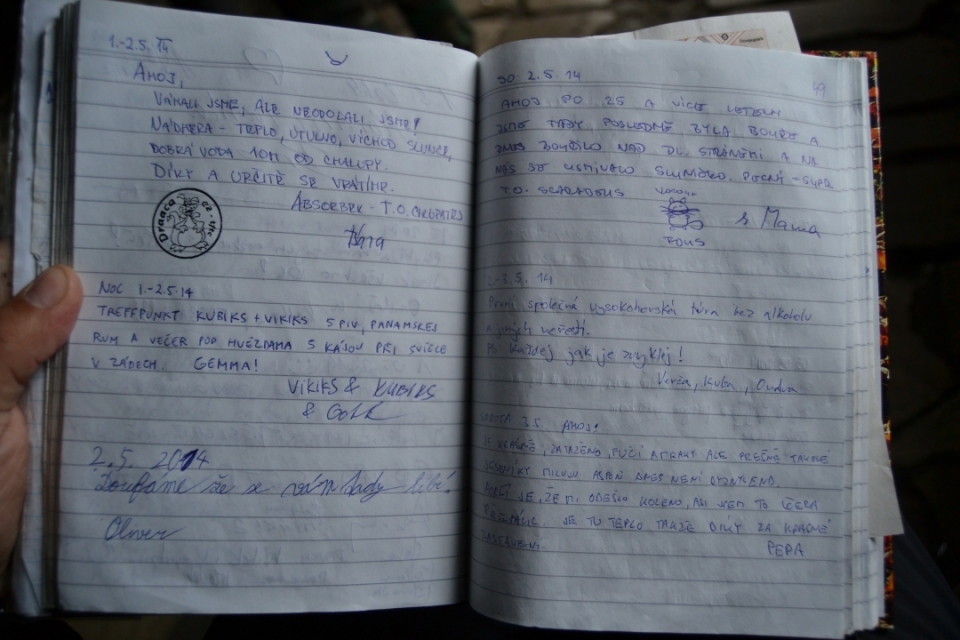 1.-2.5. 14
AHOJ,
VÁHALI JSME, ALE NEODOLALI JSME!
NÁDHERA - TEPLO, ÚTULNO, VÝCHOD SLUNCE,
DOBRÁ VODA 10M OD CHALUPY.
DÍKY A URČITĚ SE VRÁTÍME.
ABSORBER - T.O.
NOC 1.-2.5.14
TREFFPUNKT KUBIKS + VIKIKS 5 PIV, PANAMSKEJ
RUM A VEČER POD HVĚZDAMA S KÁJOU PŘI SVÍČCE
V ZÁDECH. GEMMA!
VIKIKS & KUBIKS
&
2.5. 2014
Doufáme že se vám tady líbí.
Oliver
49
SO 2.5.14
AHOJ PO 25 A VÍCE LETECH
JSME TADY POSLEDNĚ BYLA BOUŘE A
DNES BOUŘILO NAD DL. STRÁNĚMI A NA
NÁS SE USMÍVALO SLUNÍČKO. POCNÝ - SUPER
T.O.
FOUS
2.-3.5. 14
První společná vysokohorská túra bez alkoholu
a jiných neřestí.
Po každej jak je zvyklej!
Kuba, Ondra
SOBOTA 3.5. AHOJ!
JE KRÁSNĚ, ZATAŽENO, FUČÍ A MRAKY ALE PŘESNĚ TAKOVÉ
JESENÍKY MILUJU ASPOŇ DNES NENÍ
JE, ŽE MI ODEŠLO KOLENO, ASI JSEM TO VČERA
PŘEPÁLIL. JE TU TEPLO TAKŽE DÍKY ZA KRÁSNÉ
PEPA